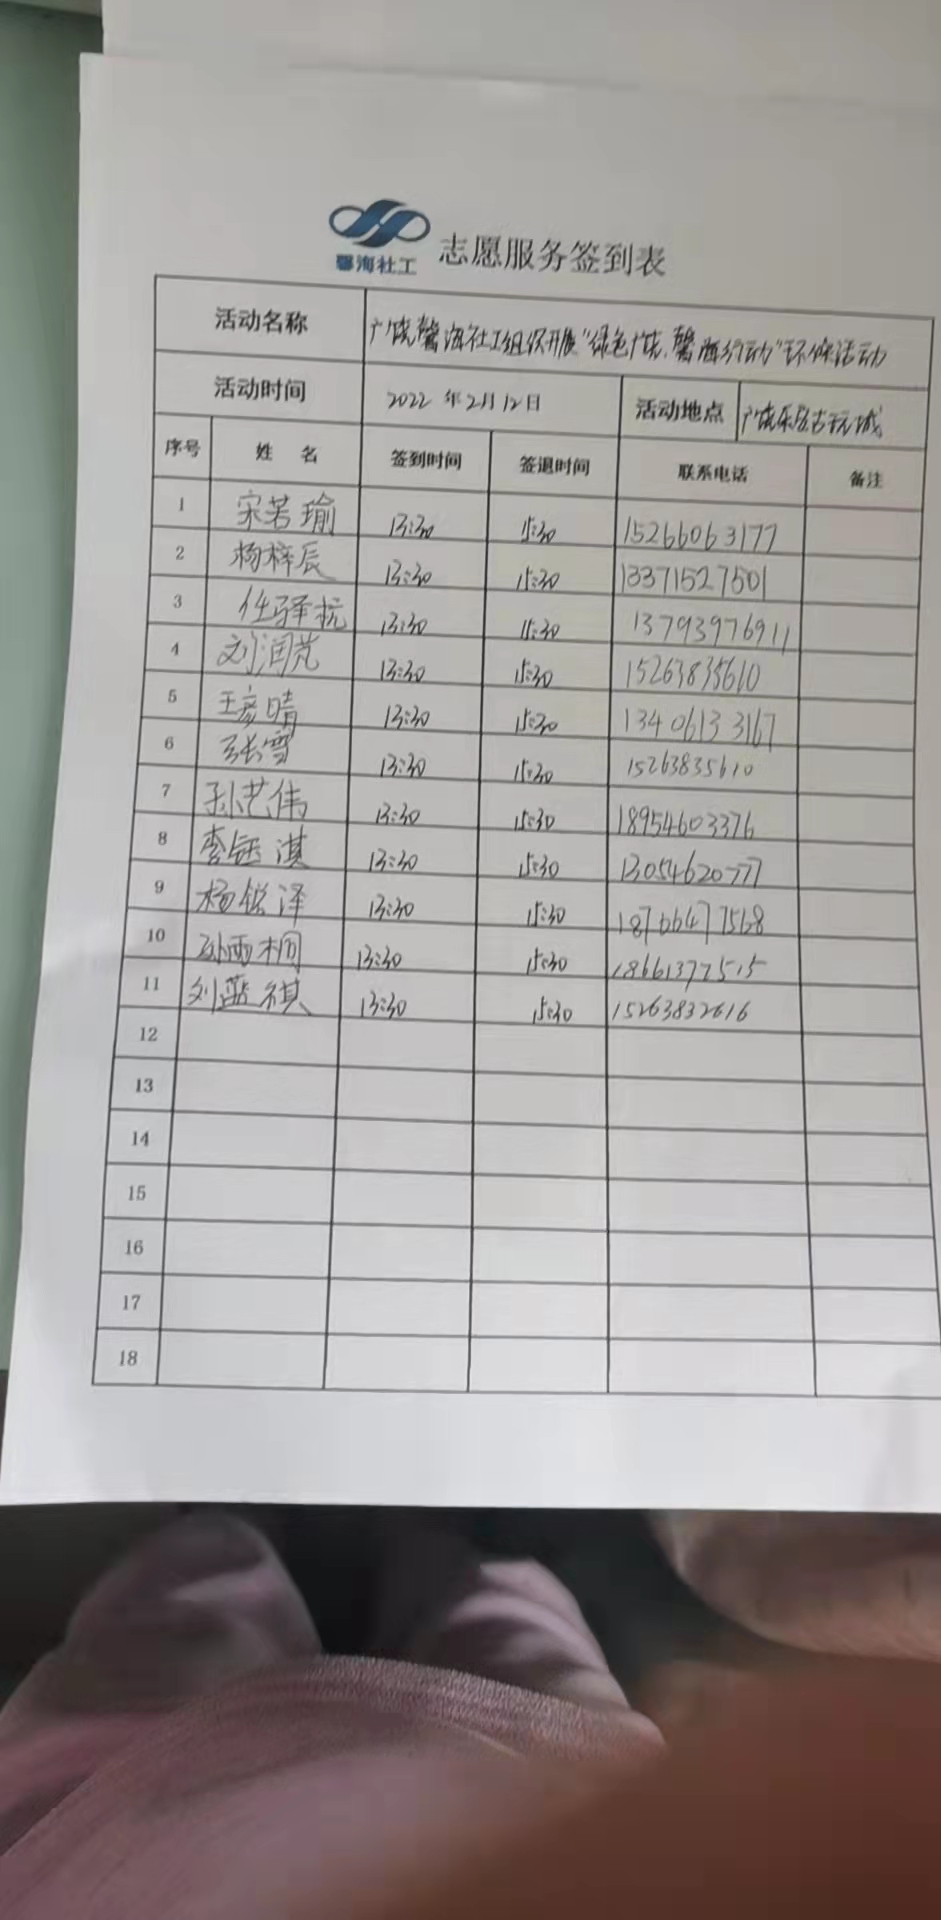 馨海社工 志愿服务签到表
活动名称 广饶馨海社工组织开展“绿色广饶、馨海行动”环保活动
活动时间 2022年2月12日 活动地点 广饶乐安古玩城
序号 姓名 签到时间 签退时间 联系电话 备注
1 宋若瑜 13:30 15:30 15266063177
2 杨梓辰 13:30 15:30 13371527501
3 任驿杭 13:30 15:30 13793976911
4 刘润芃 13:30 15:30 15263835610
5 王彦晴 13:30 15:30 13406133167
6 张雪 13:30 15:30 15263835610
7 孙艺伟 13:30 15:30 18954603376
8 李钰淇 13:30 15:30 13054620777
9 杨锐泽 13:30 15:30 18766477568
10 孙雨桐 13:30 15:30 18661377515
11 刘蓝祺 13:30 15:30 15263832616
12
13
14
15
16
17
18